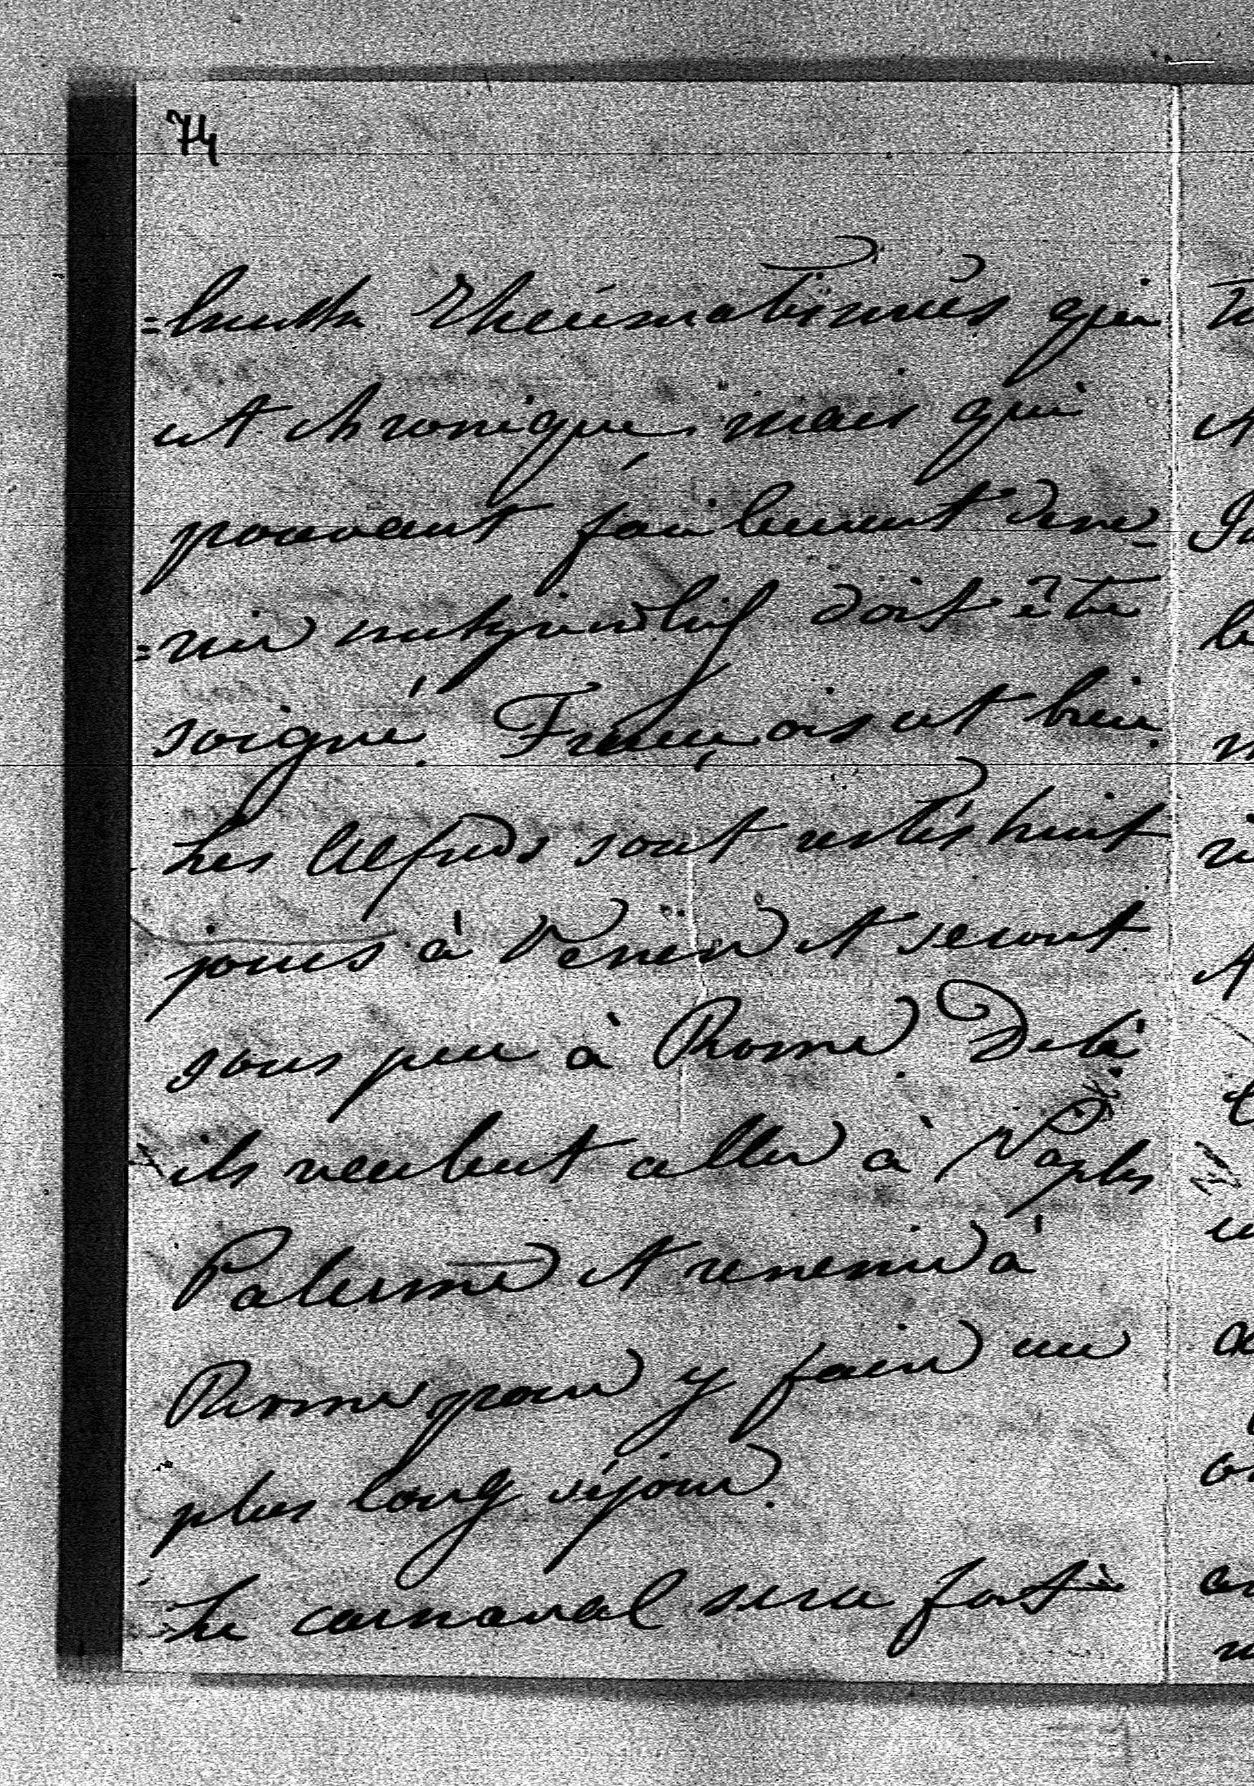 74
Rheumatismés qui
est chronique, mais qui
pouvant facilement deve-
=nir doit être
soigné. François est bien.
Les Alfreds sont restés huit
jours à Venise et seront
sous peu à Rome. De là
ils veulent aller à Naples
Palerme et revenir à
Rome pour y faire un
plus long séjour.
Le carnaval sera fort